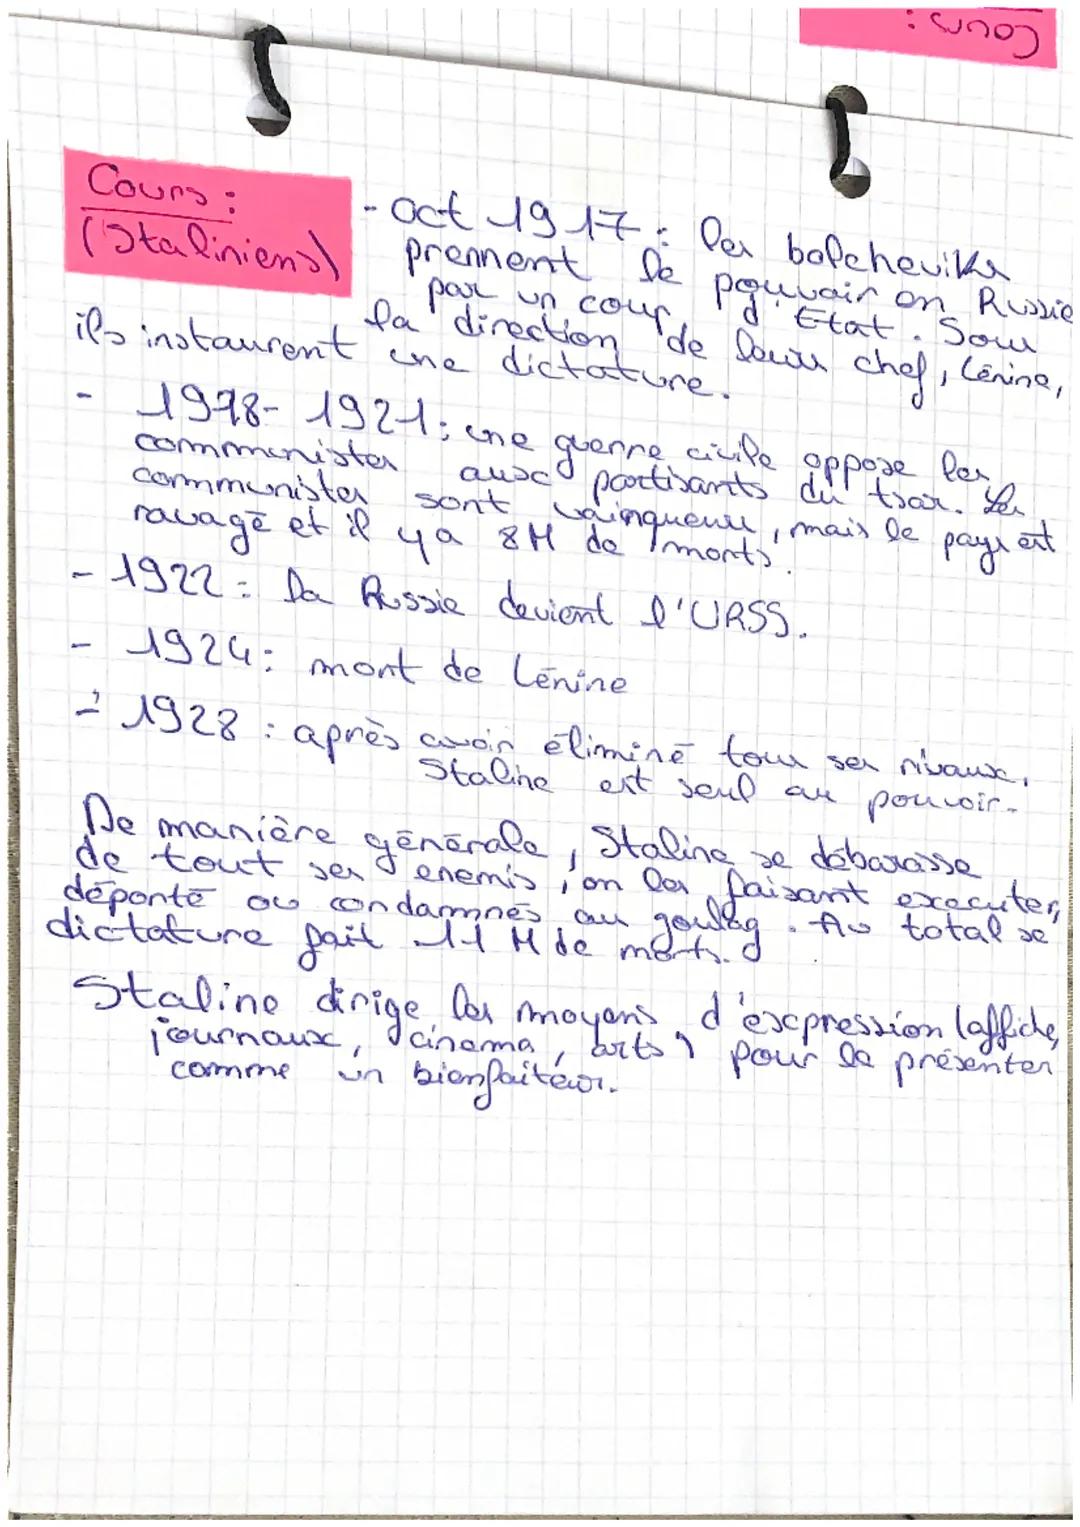 Cours :
Cours :
(Staliniens)
- oct 1917 : les bolcheviks
prennent le pouvoir en Russie
par un coup d'Etat. Sous
la direction de leur chef, Lénine,
ils instaurent une dictature.
- 1918-1921 : une guerre civile oppose les
communistes aux partisants du tsar. Les
communistes sont vainqueurs, mais le pays est
ravagé et il y a 8M de morts.
- 1922 : la Russie devient l'URSS.
- 1924 : mort de Lénine
- 1928 : après avoir éliminé tous ses rivaux,
Staline est seul au pouvoir.
De manière générale, Staline se débarasse
de tout ses enemis, en les faisant executer,
déporté ou condamnés au goulag. Au total se
dictature fait 11 M de morts.
Staline dirige les moyens d'expression (affiche,
journaux, cinema, arts) pour le présenter
comme un bienfaiteur.